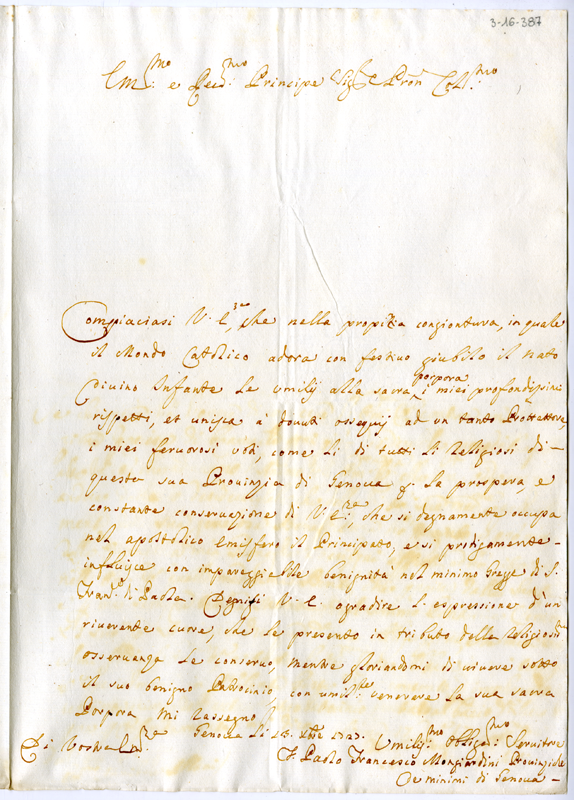 3-16-387
Em.mo e Red.mo Principe Sig.re Pron Col.mo
Compiaciasi V. E.za, che nella propizia congiontura, in quale
il Mondo Catolico adora con festiuo giubilo il nato
Diuino Infante Le vmilij alla sacra porpora i miei profondissimi
rispetti, et unisca à douuti ossequij ad un tanto Prottettore
i miei feruorosi voti, come li di tutti li Religiosi di
questa sua Prouinzia di Genoua p. la prospera, e
constante conseruazione di V. E.za, che si degnamente occupa
nel apostolico Emisfero il Principato, e si prodigamente
influisce con impareggiabile benignità nel minimo Gregge di S.
Fran.o di Paola. Degnisi V. E. agradire l. espressione d'un
riuerente cuore, che le presento in tributo della Religiosa
osseruanza Le conseruo, mentre gloriandomi di uiuere sotto
il suo benigno Patrocinio con umil.te venerare La sua sacra
Porpora mi rassegno
Genoua li 1727.
Di Vostra Em.za
Vmiliss.mo Obligat.mo Seruitore
F. Paolo Francesco Mongiardini Prouinciale
De minimi di Genoua